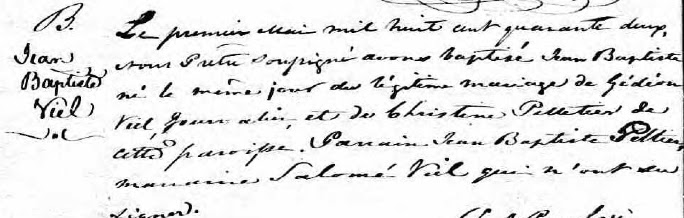 B.
Jean
Baptiste
Viel
Le premier Mai mil huit cent quarante deux,
nous Prêtre soussigné avons baptisé Jean Baptiste
né le même jour du légitime mariage de Gédéon
Viel, Journalier, et de Christine Pelletier de
cette paroisse. Parrain Jean Baptiste Peltier,
marraine Salomé Viel qui n'ont su
signer.